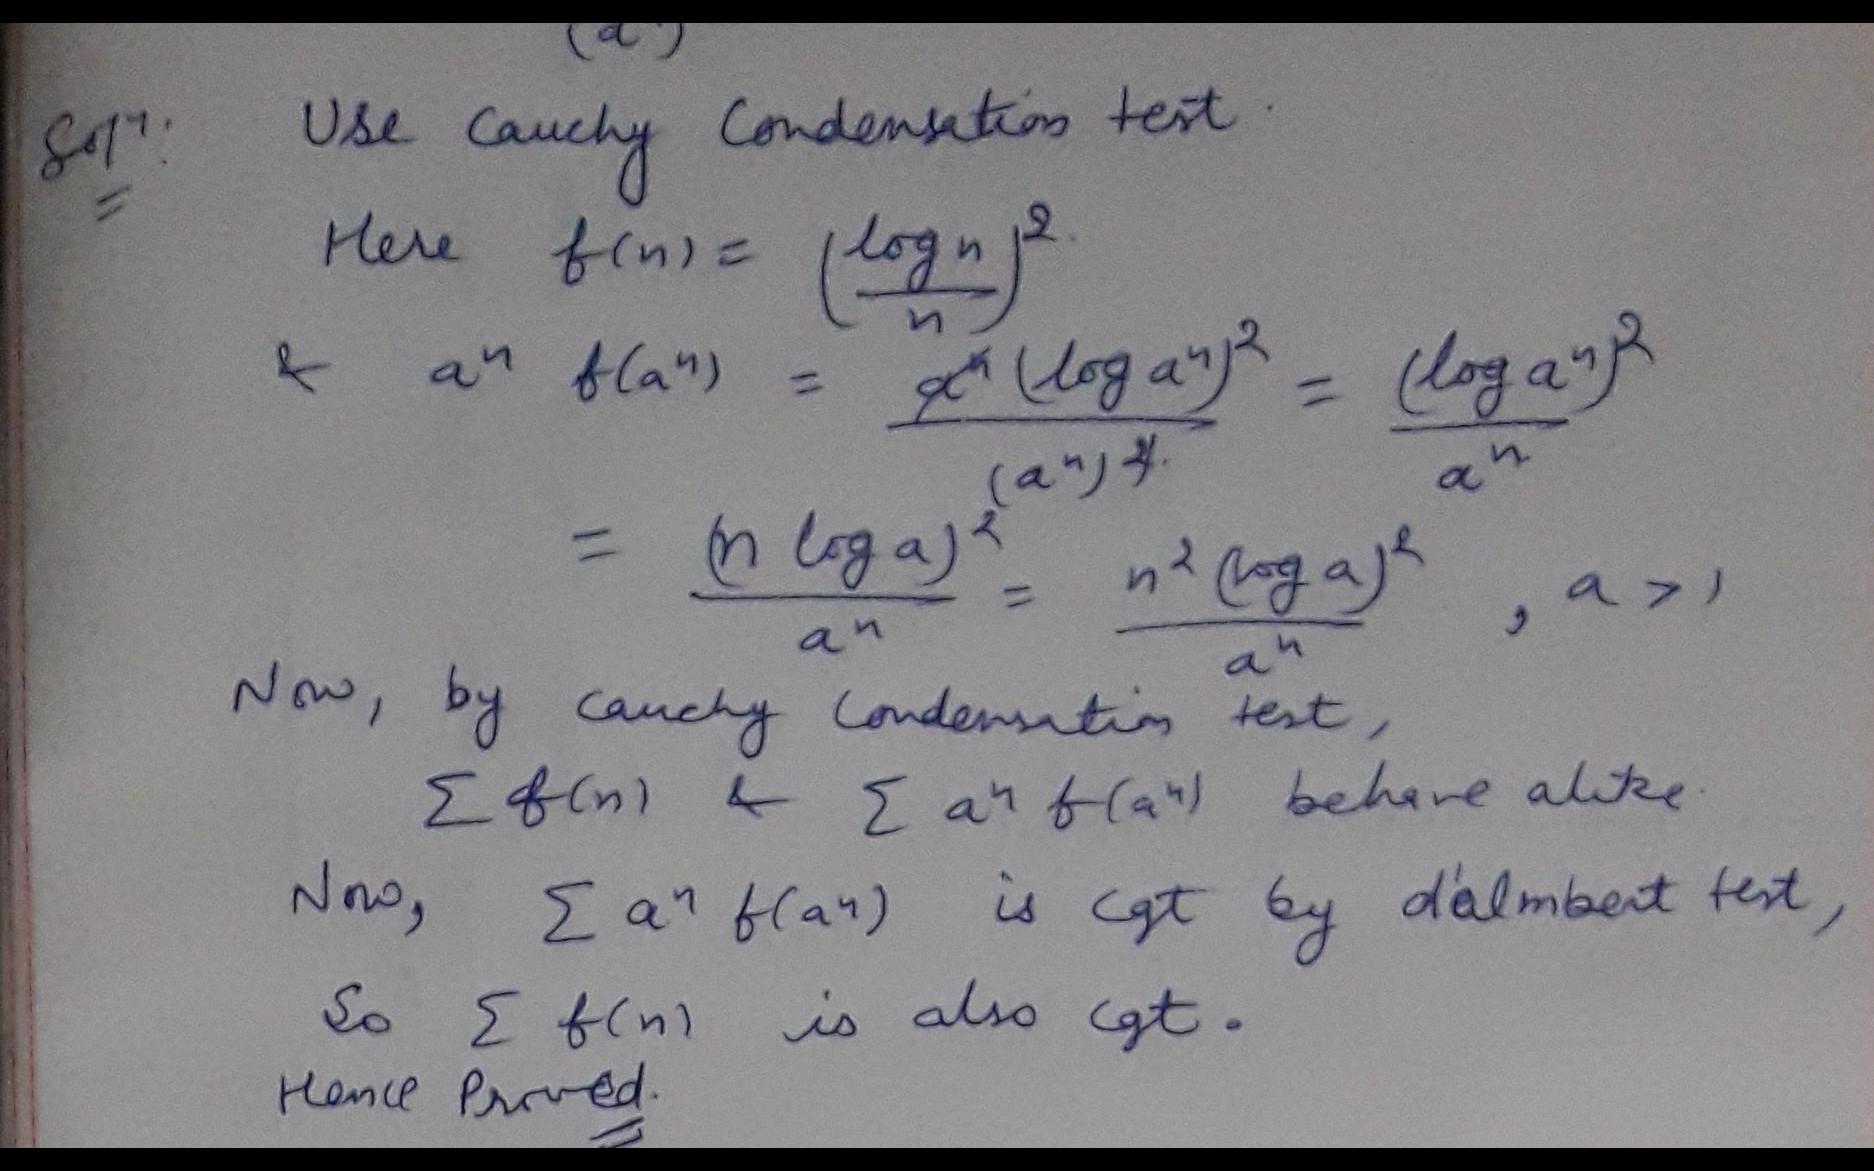 (aⁿ)
Solⁿ: Use Cauchy Condensation test.
Here f(n) = (log n / n)².
& aⁿ f(aⁿ) = aⁿ (log aⁿ)² / (aⁿ)² = (log aⁿ)² / aⁿ
= (n log a)² / aⁿ = n² (log a)² / aⁿ , a > 1
Now, by Cauchy Condensation test,
Σ f(n) & Σ aⁿ f(aⁿ) behave alike.
Now, Σ aⁿ f(aⁿ) is cgt by d'almbert test,
So Σ f(n) is also cgt.
Hence Proved.